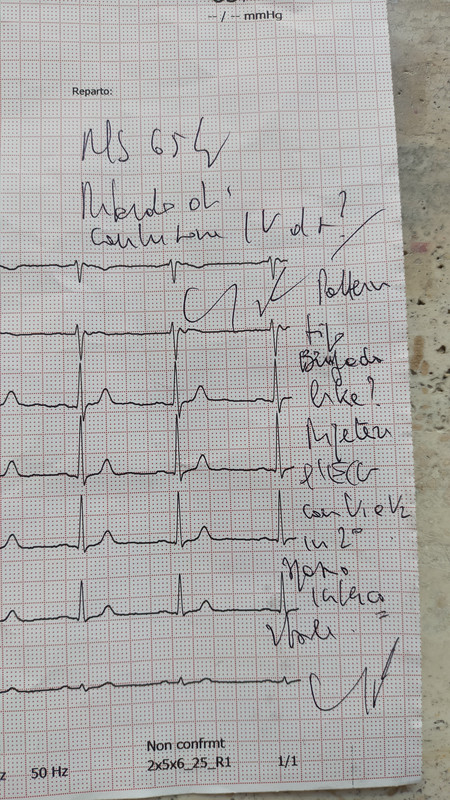 -- / -- mmHg
Reparto:
MS 65
Ritardo di
conduzione IV dx?
Pattern
tip
Brugada
like?
Ripetere
l'ECG
con V1 e V2
in 2°
spazio
interco
stale.
50 Hz
Non confrmt
2x5x6_25_R1
1/1